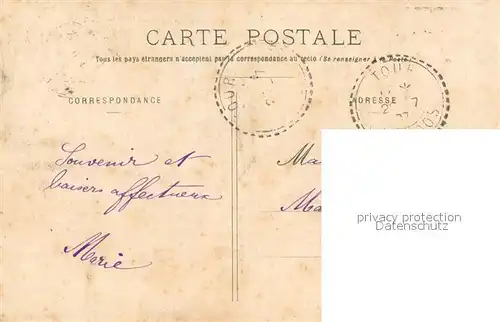 CARTE POSTALE
Tous les pays étrangers n'acceptent pas la correspondance au recto (Se renseigner à la Poste)
CORRESPONDANCE
ADRESSE
Souvenir et
baisers affectueux
Marie
Ma
Ma
privacy protection
Datenschutz